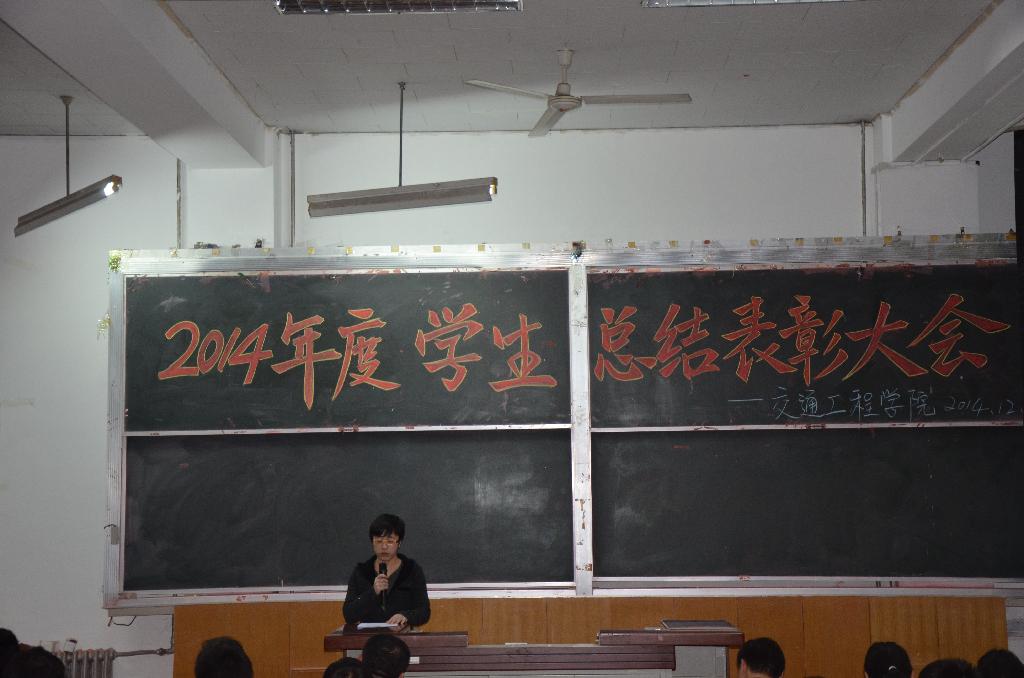 2014年度学生总结表彰大会
—交通工程学院 2014.12.